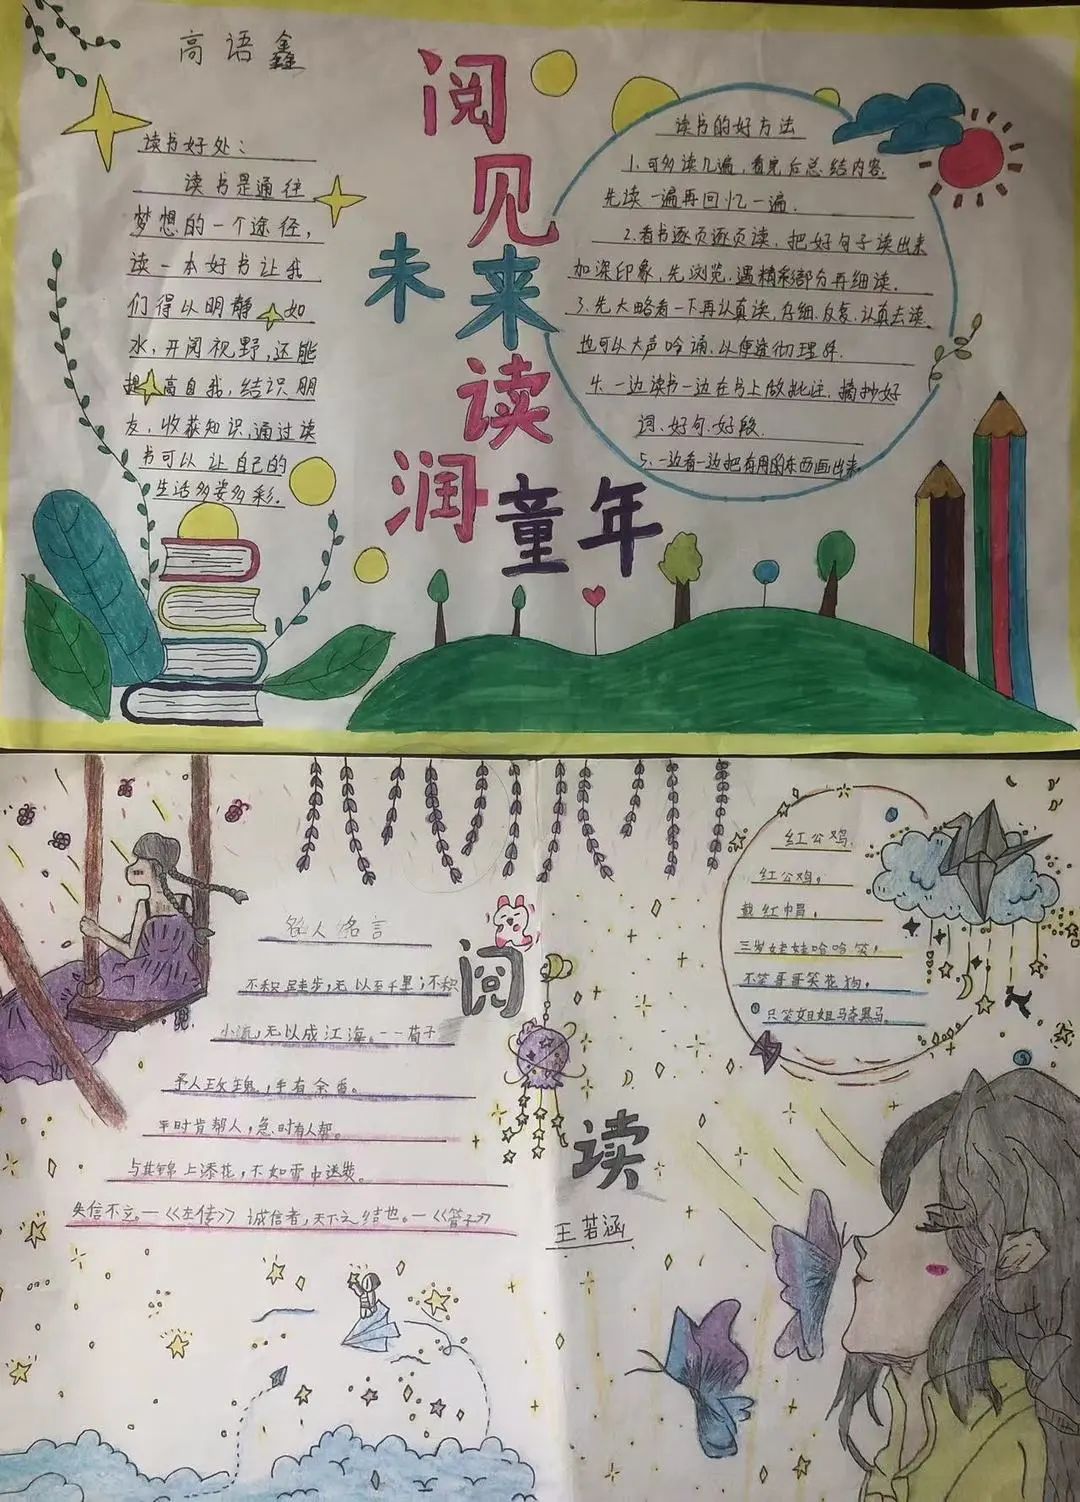 高语鑫
阅见未来
读润童年
读书好处：
读书是通往
梦想的一个途径，
读一本好书让我
们得以明静如
水，开阅视野，还能
提高自我，结识朋
友，收获知识，通过读
书可以让自己的
生活多姿多彩．
读书的好方法
1．可多读几遍，看完后总结内容．
先读一遍再回忆一遍．
2．看书逐页逐页读．把好句子读出来
加深印象，先浏览．遇精彩部分再细读．
3．先大略看一下再认真读，仔细．反复．认真去读．
也可以大声吟诵．以便 彻理解．
4．一边读书一边在书上做批注．摘抄好
词．好句．好段．
5．一边看一边把有用的东西画出来．
名人名言
不积跬步，无以至千里；不积
小流，无以成江海。——荀子
予人玫瑰，手有余香。
平时肯帮人，急时有人帮。
与其锦上添花，不如雪中送
失信不立。—《左传》 诚信者，天下之结也。—《管子》
阅
读
王若涵
红公鸡
红公鸡，
戴红帽，
三岁娃娃哈哈笑，
不笑哥哥笑花狗，
只笑姐姐骑黑马。